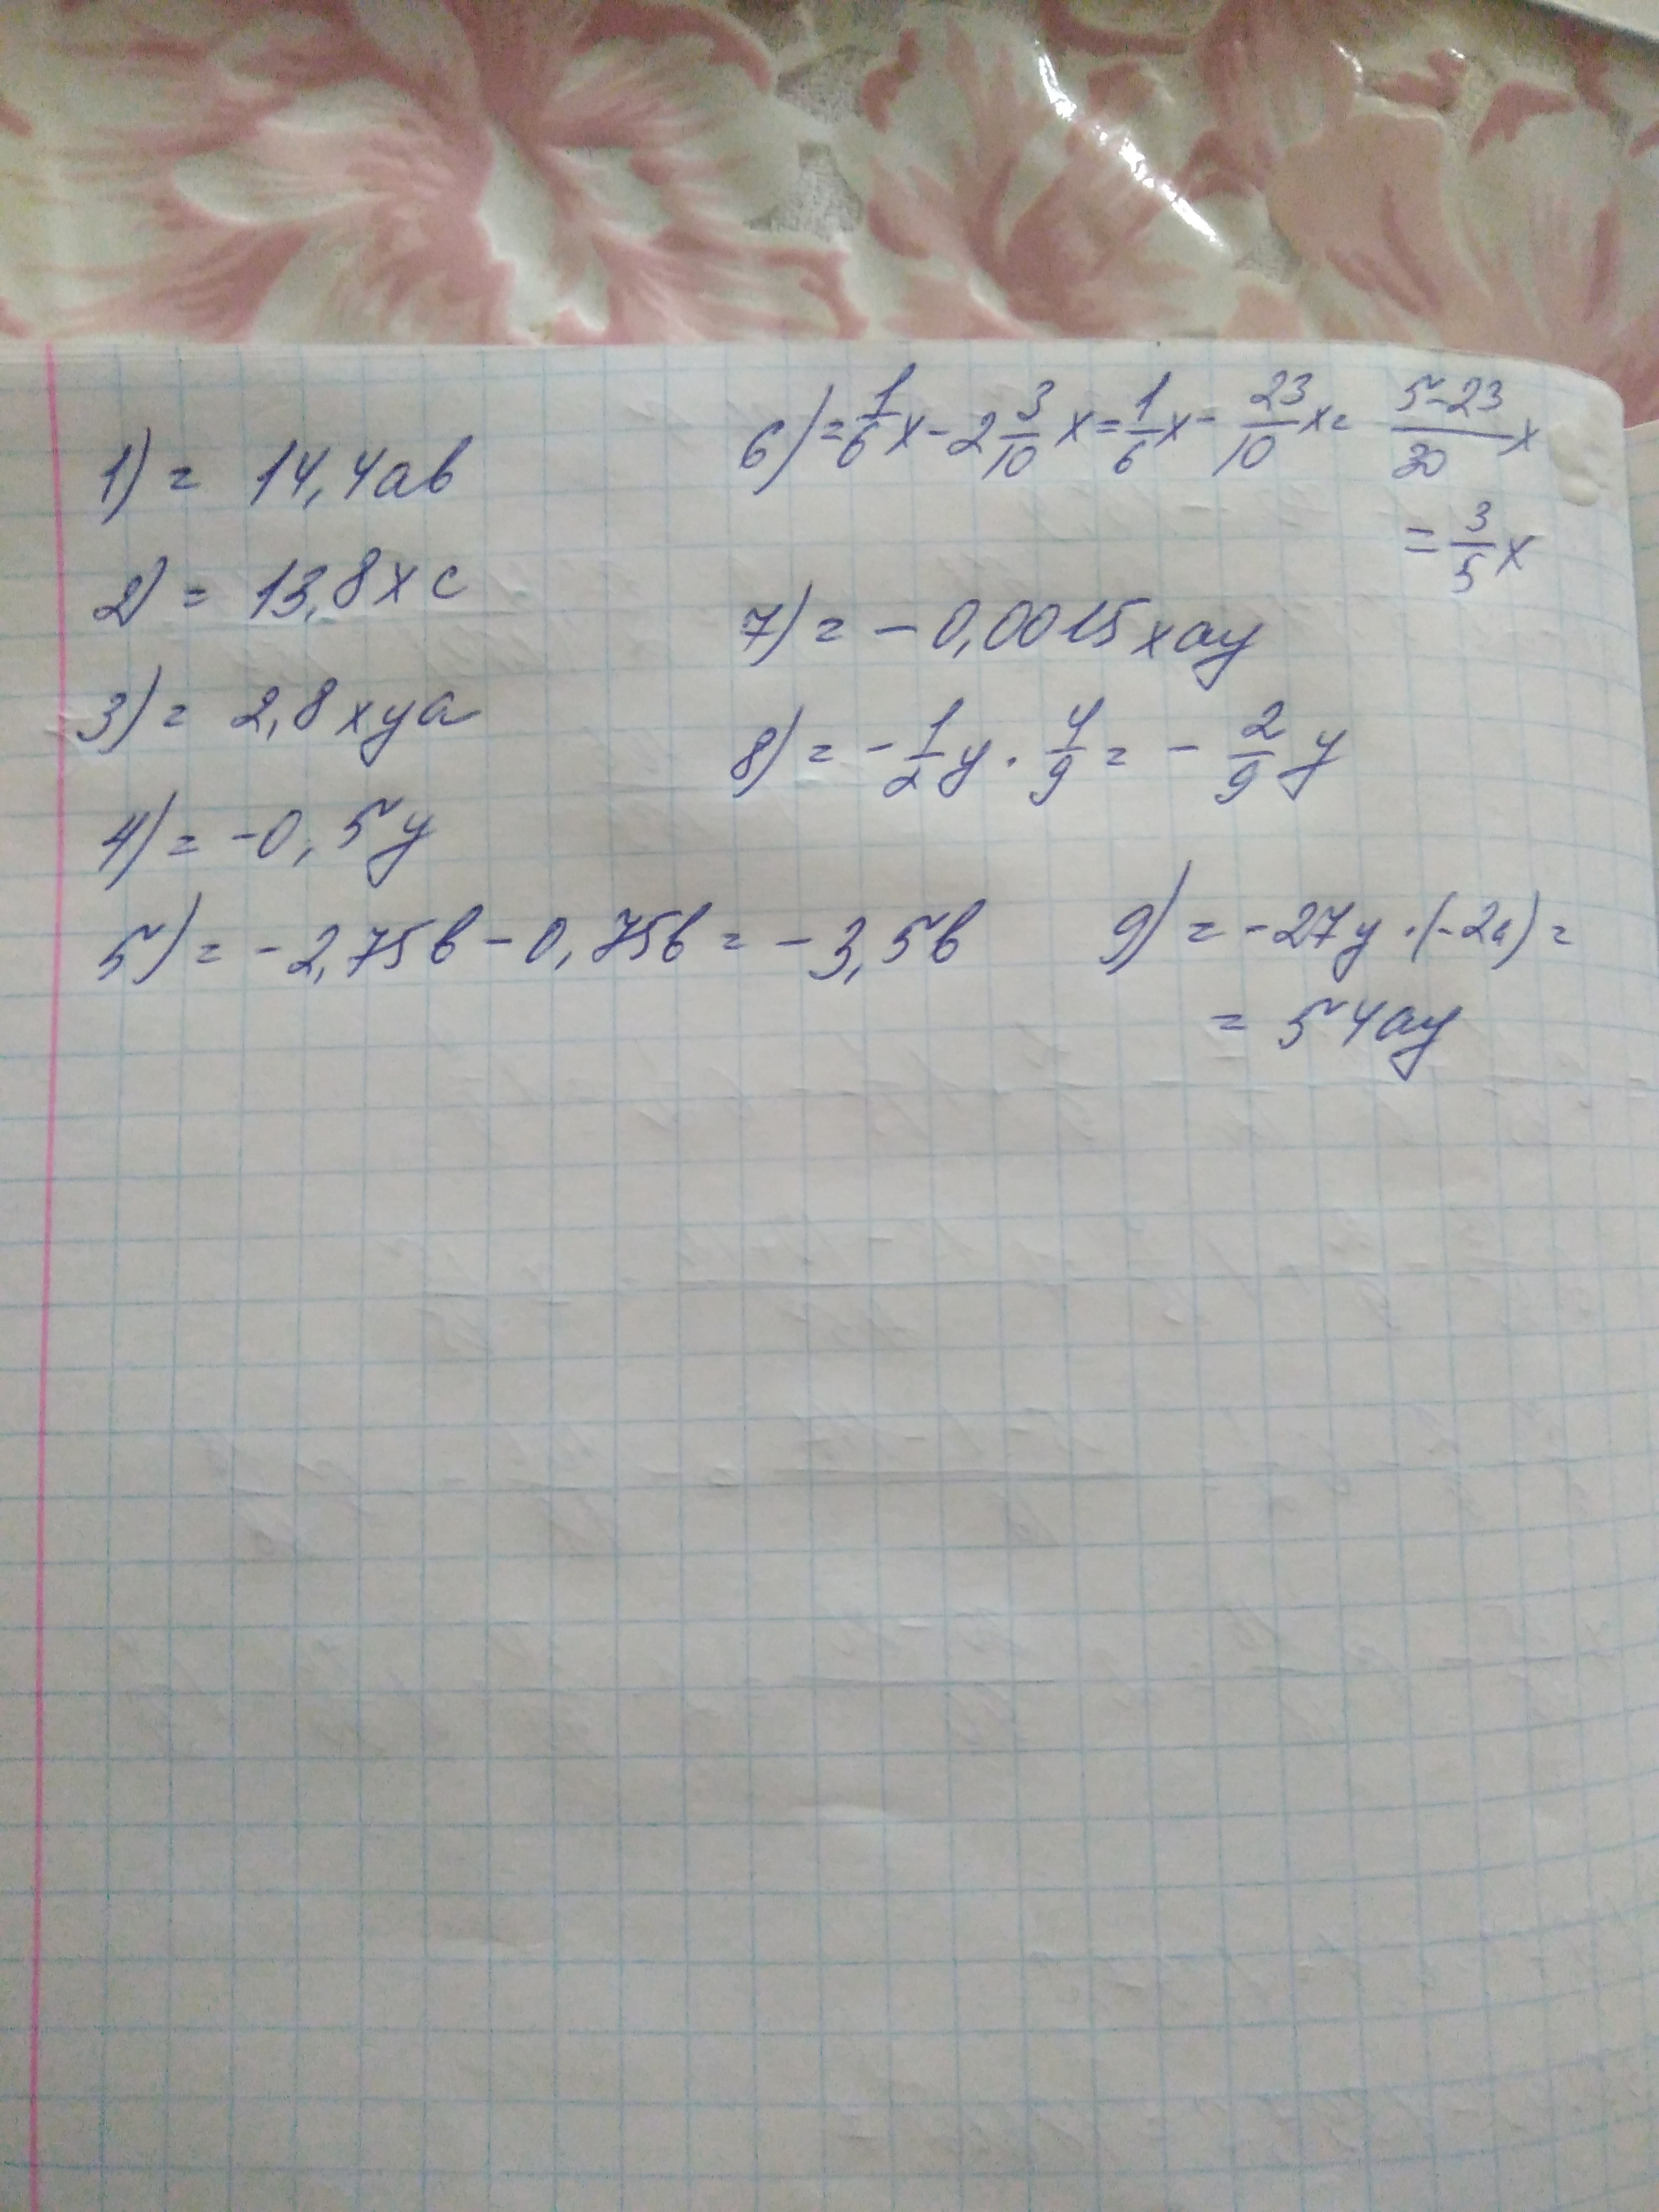 1) = 14,4ab
2) = 13,8xc
3) = 2,8xya
4) = -0,5y
5) = -2,75b - 0,75b = -3,5b
6) = 1/6 x - 2 3/10 x = 1/6 x - 23/10 x = 5-23/30 x
= 3/5 x
7) = -0,0015xay
8) = -1/2 y · 4/9 = -2/9 y
9) = -27y · (-2a) =
= 54ay